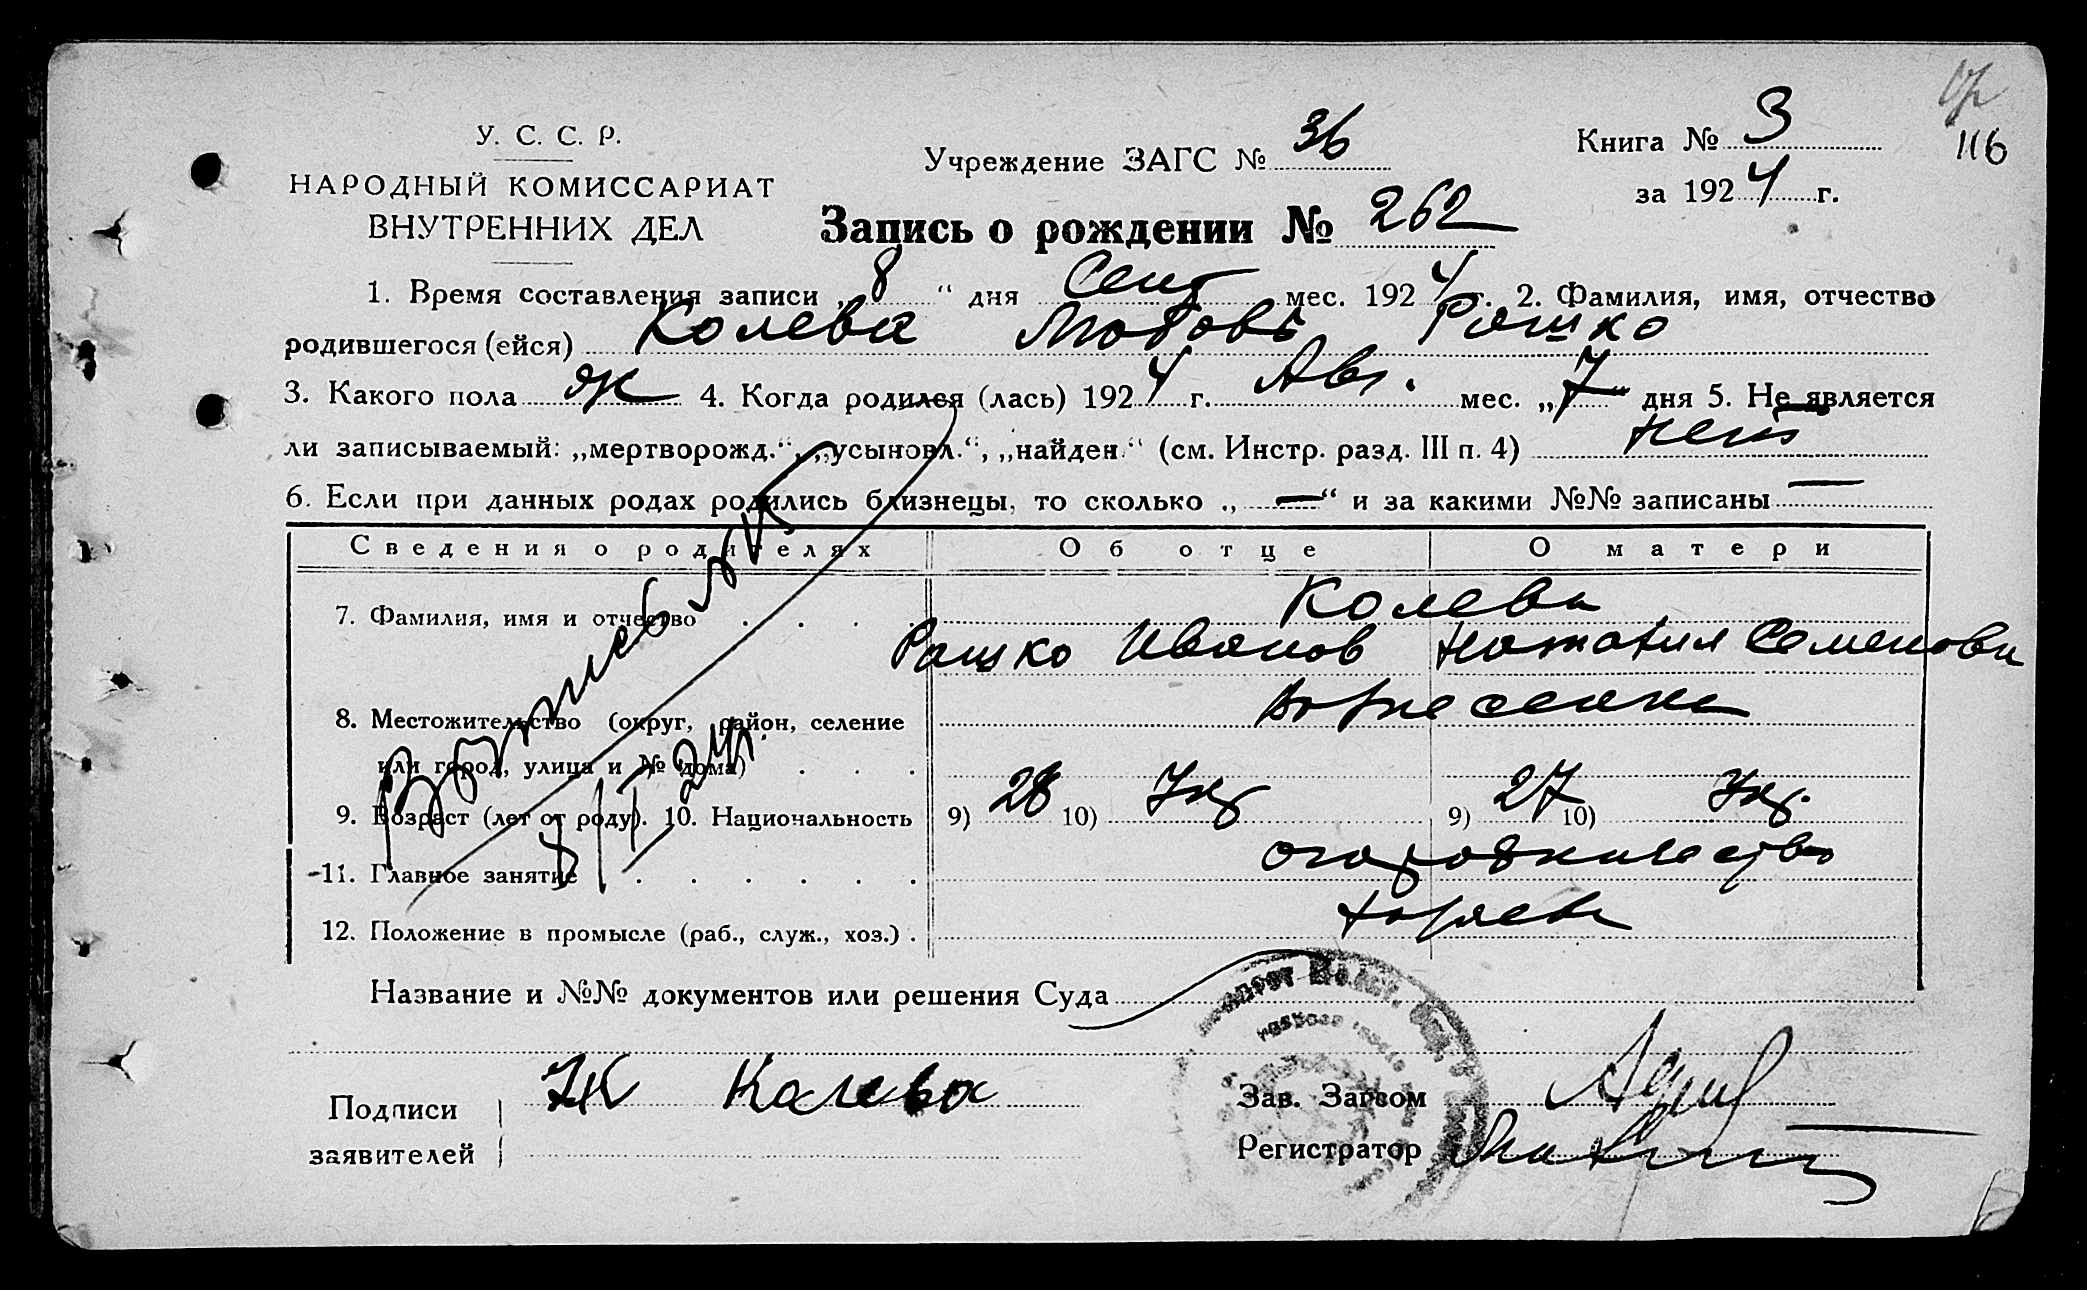 116
У. С. С. Р.
НАРОДНЫЙ КОМИССАРИАТ
ВНУТРЕННИХ ДЕЛ
Учреждение ЗАГС № 36
Книга № 3
за 1924 г.
Запись о рождении № 262
1. Время составления записи „ 8 “ дня Сент мес. 1924 г. 2. Фамилия, имя, отчество
родившегося (ейся) Колева Любовь Рашко
3. Какого пола ж 4. Когда родился (лась) 1924 г. Авг. мес. „ 7 “ дня 5. Не является
ли записываемый: „мертворожд.“, „усыновл.“, „найден.“ (см. Инстр. разд. III п. 4) нет
6. Если при данных родах родились близнецы, то сколько „ — “ и за какими №№ записаны —
Сведения о родителях Об отце О матери
7. Фамилия, имя и отчество . . . . Колева
Рашко Иванов Наталия Семенова
8. Местожительство (округ, район, селение Вознесенка
или город, улица и № дома) . . .
9. Возраст (лет от роду). 10. Национальность 9) 28 10) Укр 9) 27 10) Укр.
11. Главное занятие . . . . . . огородничество
12. Положение в промысле (раб., служ., хоз.) . хозяев
Название и №№ документов или решения Суда
Подписи
заявителей
Колева
Зав. Загсом
Регистратор